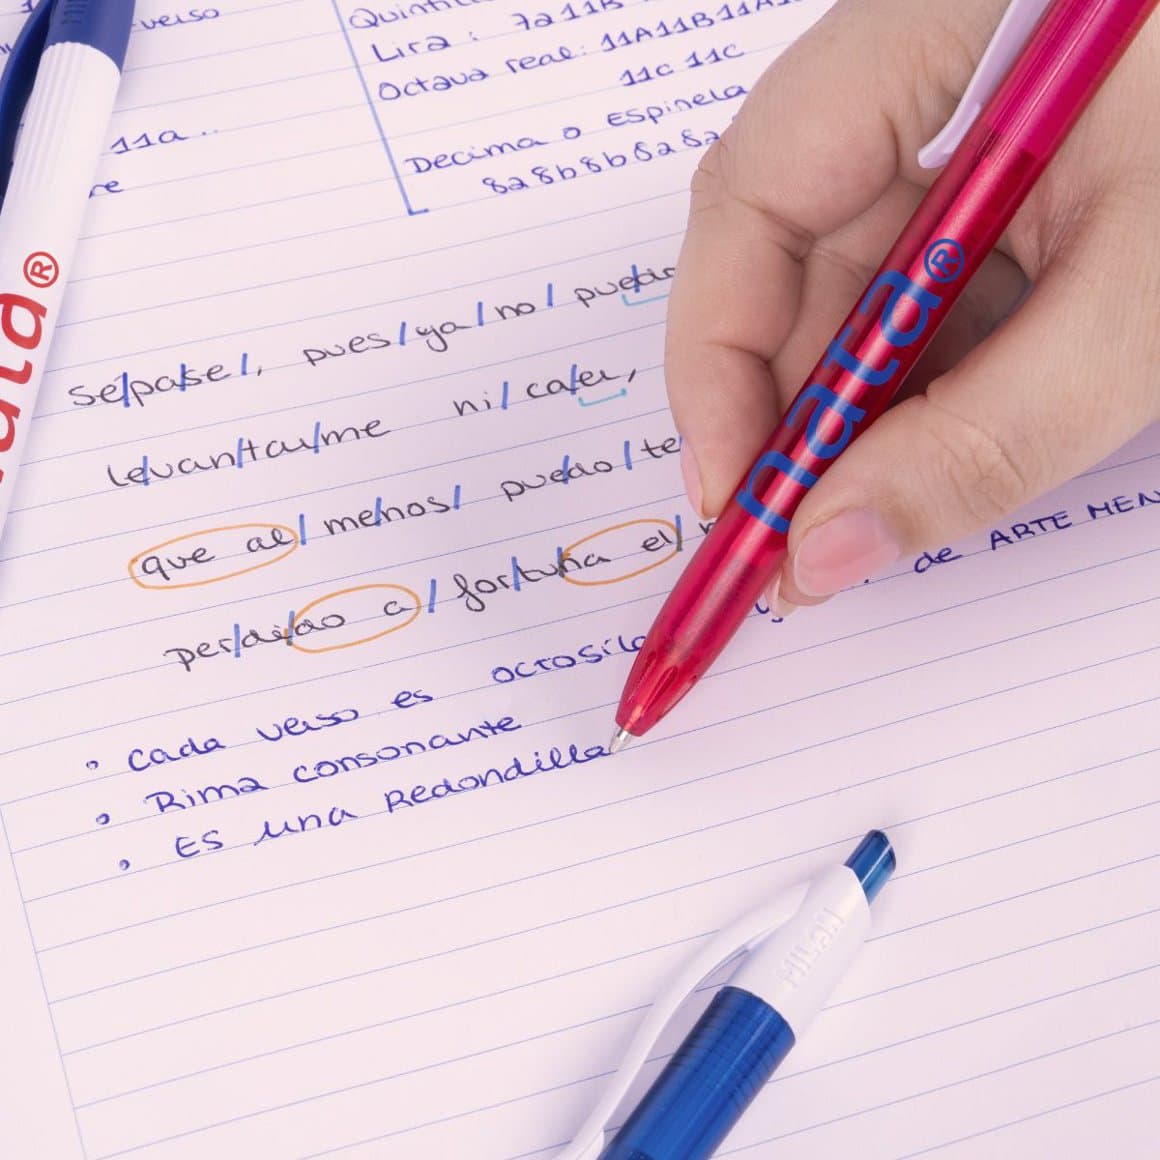 verso
11a..
re
Lira: 7a11B
Octava real: 11A11B11A1
11c 11c
Decima o Espinela
8a8b8b8a8a
Se/pa/se/, pues/ya/no/ puedo
le/van/tar/me ni/ca/er,
que al/ me/nos/ pue/do/te
per/di/do a/for/tu/na el/
• Cada verso es octosíla
y de ARTE MEN
• Rima consonante
• Es una Redondilla
nata®
nata®
MILAN